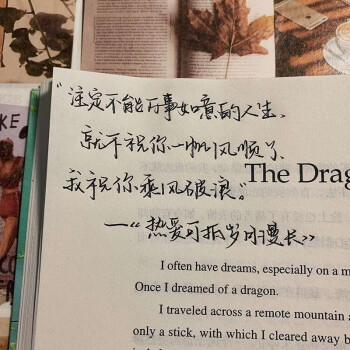 “注定不能万事如意的人生，
就不祝你一帆风顺了
我祝你乘风破浪。”
—《热爱可抵岁月漫长》
The Drag
I often have dreams, especially on a m
Once I dreamed of a dragon.
I traveled across a remote mountain a
only a stick, with which I cleared away b